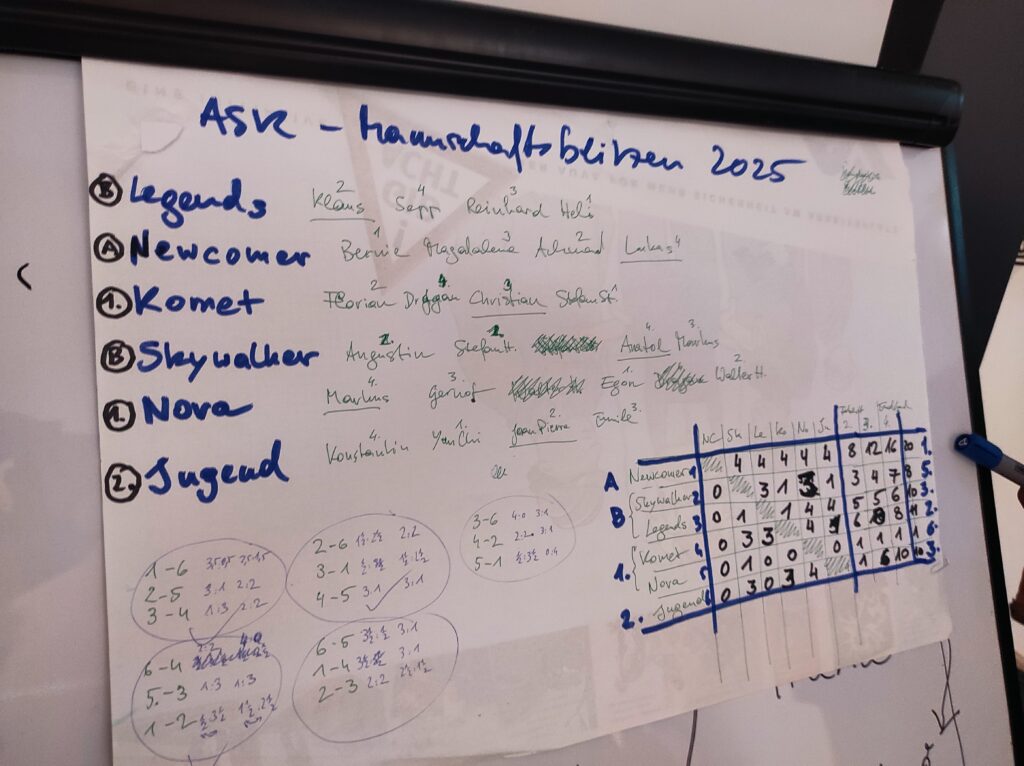 ASK - Mannschaftsblitzen 2025
B Legends Klaus 2 Sepp 4 Reinhard 3 Heli 1
A Newcomer Bernie 1 Magdalena 3 Achmad 2 Lukas 4
1. Komet Florian 2 Dragan 4. Christian 3 Stefan St. 1
B Skywalker Augustin 2. Stefan H. 1 Anatol 4. Markus 3.
1. Nova Markus 4. Gernot 3. Egon 1. Walter H. 2.
2. Jugend Konstantin 4. YanChi 1. Jean Pierre 2. Emile 3.
NC Sk Le Ko No Ju 2. 3. 4.
A Newcomer 1 4 4 4 4 4 8 12 16 20 1.
B Skywalker 2 0 3 1 3 1 3 4 7 8 5.
Legends 3 0 1 1 4 4 5 5 6 10 3.
1. Komet 4 0 3 3 4 6 8 11 2.
Nova 5 0 1 0 0 0 1 1 1 1 6.
2. Jugend 6 0 3 0 3 4 1 6 10 10 3.
1-6
2-5 3:1 2:2
3-4 1:3 2:2
2-6 2:2
3-1
4-5 3:1 3:1
3-6 4:0 3:1
4-2 2:2 3:1
5-1 ½:3½ 0:4
6-4
5-3 1:3 1:3
1-2
6-5 3:1
1-4 3:1
2-3 2:2 2½:1½